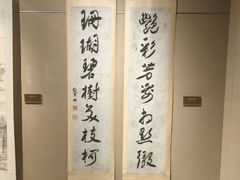 艷彩芳姿相點綴
珊瑚碧樹交枝柯